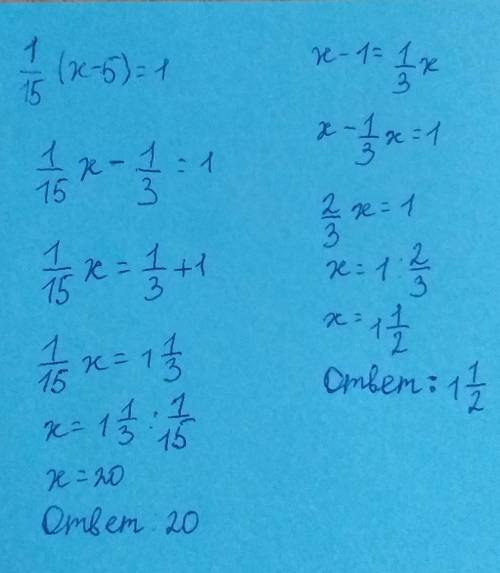 1/15 (x-5)=1
1/15 x - 1/3 = 1
1/15 x = 1/3 + 1
1/15 x = 1 1/3
x = 1 1/3 : 1/15
x = 20
Ответ: 20
x - 1 = 1/3 x
x - 1/3 x = 1
2/3 x = 1
x = 1 : 2/3
x = 1 1/2
Ответ: 1 1/2